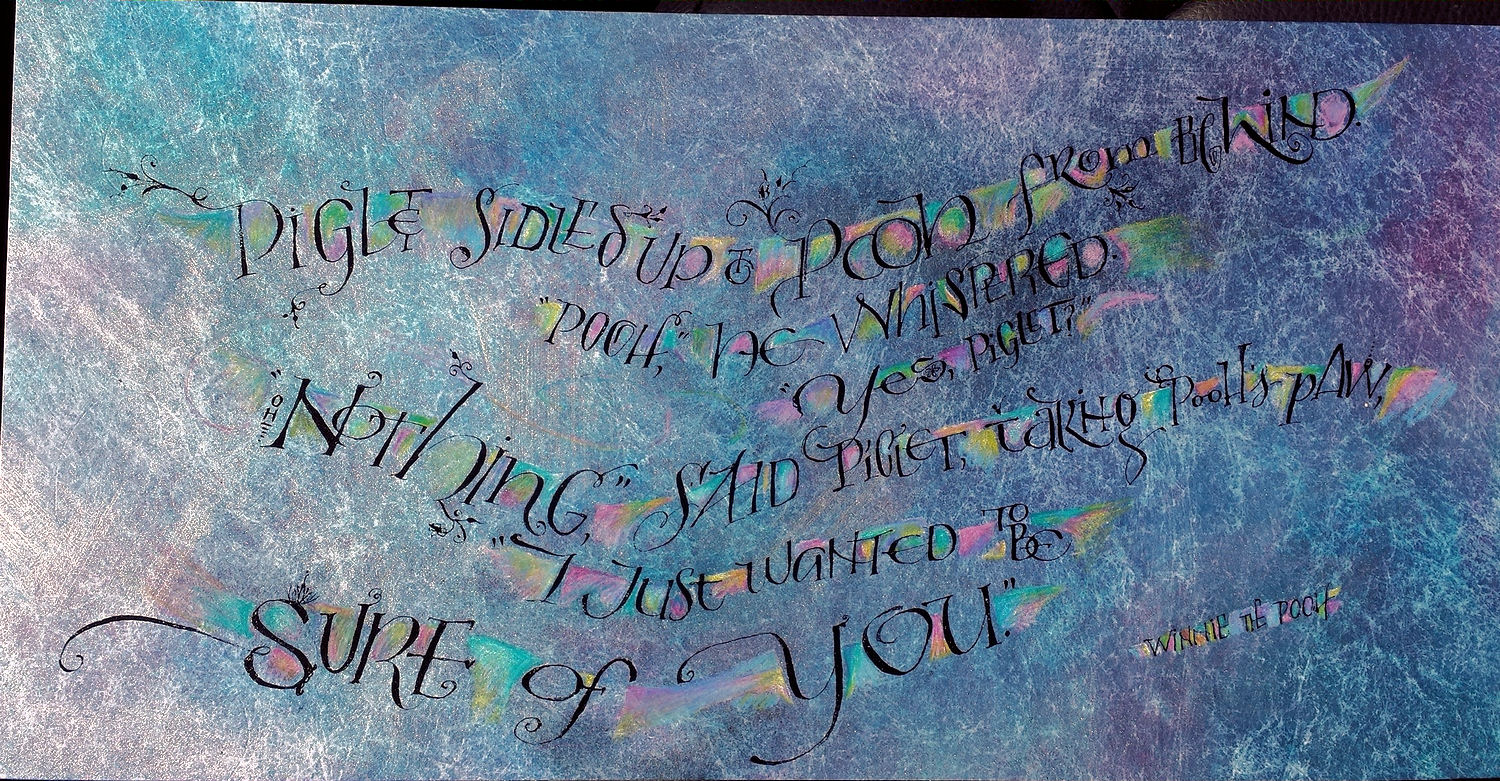 PiGLET SIDLES UP TO POOH fROM BEHiND.
"POOH," HE WHiSPERED.
"YES, PiGLET?"
"OH "NOTHING," SAID PiGLET, TAKING POOH'S PAW,
"I JUST WANTED TO BE
SURE of YOU."
WINNIE THE POOH